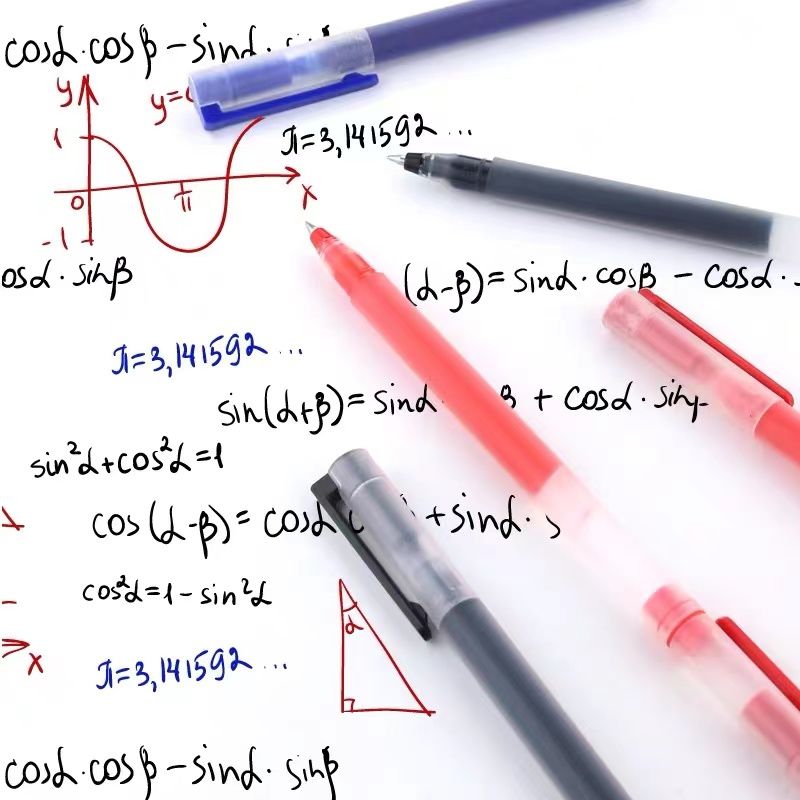 cosα·cosβ - sinα·
y
y=
1
π=3,141592 ...
0
π
x
-1
osα·sinβ
(α-β)= sinα·cosβ - cosα·
π=3,141592 ...
sin(α+β)= sinα β + cosα·sin
sin²α+cos²α=1
cos(α-β)= cosα c +sinα·
cos²α=1-sin²α
α
x
π=3,141592 ...
cosα·cosβ - sinα·sinβ